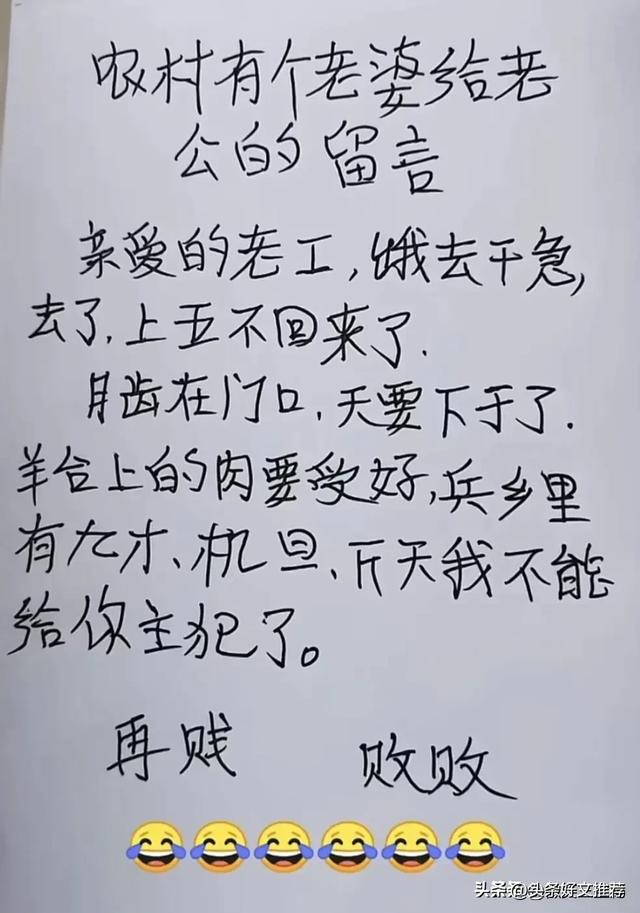 农村有个老婆给老
公的留言
亲爱的老工,饿去干急,
去了.上五不回来了.
月齿在门口,天要下于了.
羊台上的肉要受好,兵乡里
有九才、机旦、斤天我不能
给你主犯了。
再贱 败败
😂😂😂😂😂😂
头条 @头条好文推荐